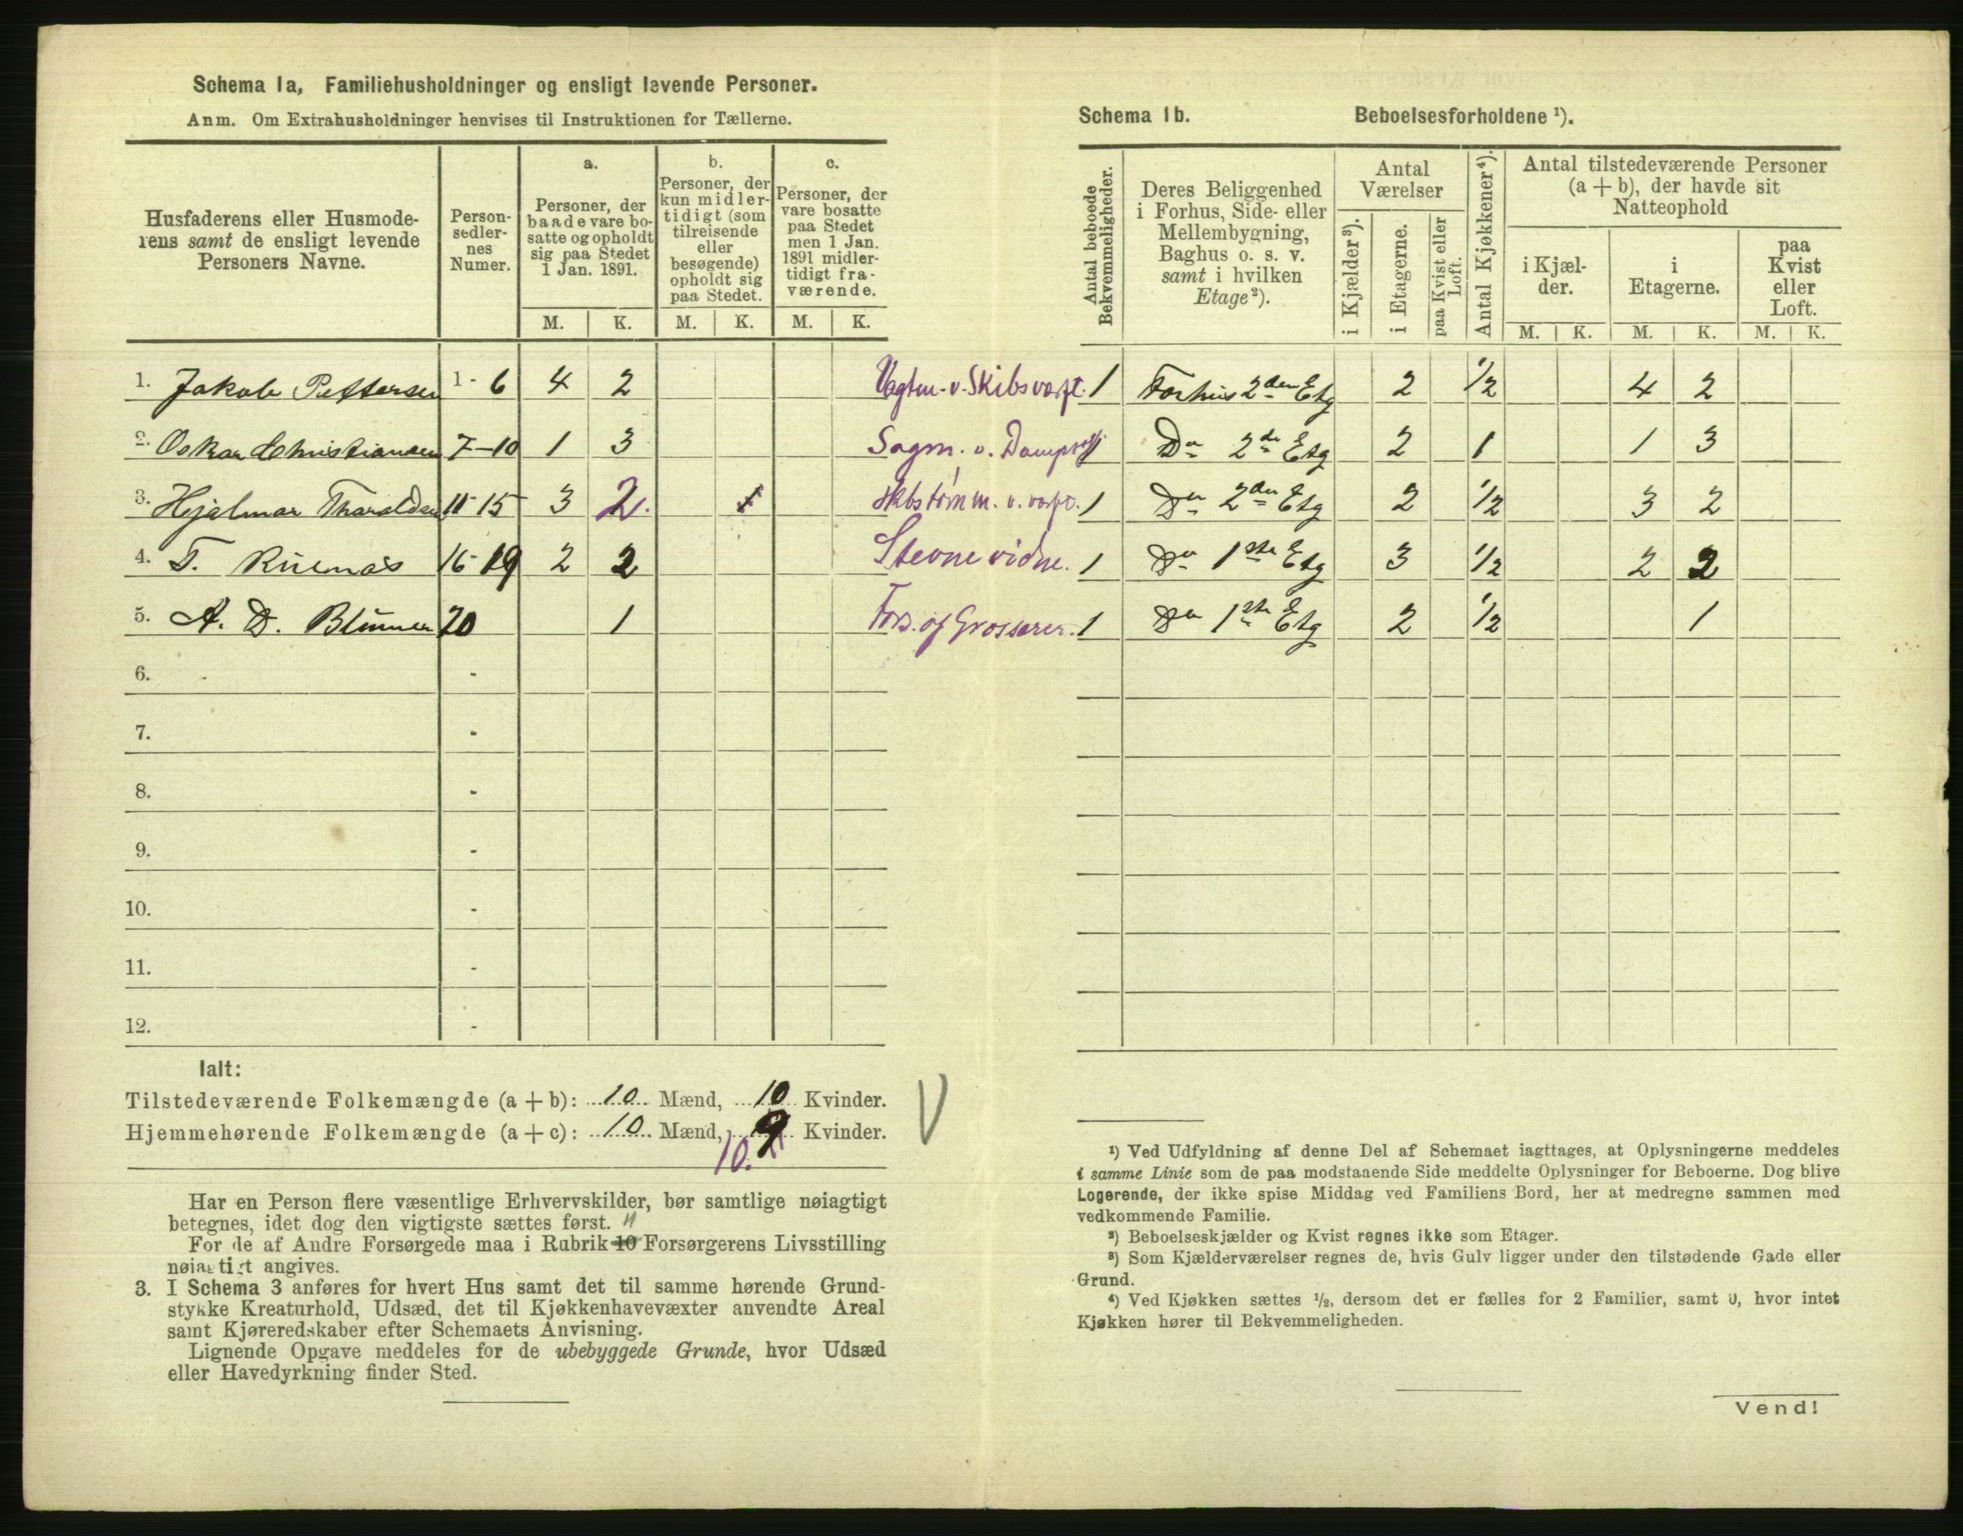 Schema 1a, Familiehusholdninger og ensligt levende Personer.
Anm. Om Extrahusholdninger henvises til Instruktionen for Tællerne.
Husfaderens eller Husmoderens samt de ensligt levende Personers Navne.
Personsedlernes Numer.
a. Personer, der baade vare bosatte og opholdt sig paa Stedet 1 Jan. 1891.
b. Personer, der kun midlertidigt (som tilreisende eller besøgende) opholdt sig paa Stedet.
c. Personer, der vare bosatte paa Stedet men 1 Jan. 1891 midlertidigt fraværende.
M. K. M. K. M. K.
1. Jakob Pettersen 1 - 6 4 2
2. Oskar Christiansen 7-10 1 3
3. Hjalmar Tharaldsen 11-15 3 2.
4. T. 16-19 2 2
5. A. D. 20 1
6. -
7. -
8. -
9. -
10. -
11. -
12. -
Ialt:
Tilstedeværende Folkemængde (a + b): 10 Mænd, 10 Kvinder.
Hjemmehørende Folkemængde (a + c): 10 Mænd, 9 Kvinder.
10.
V
Har en Person flere væsentlige Erhvervskilder, bør samtlige nøiagtigt
betegnes, idet dog den vigtigste sættes først. 11
For de af Andre Forsørgede maa i Rubrik 10 Forsørgerens Livsstilling
nøiagtigt angives.
3. I Schema 3 anføres for hvert Hus samt det til samme hørende Grund-
stykke Kreaturhold, Udsæd, det til Kjøkkenhavevæxter anvendte Areal
samt Kjøreredskaber efter Schemaets Anvisning.
Lignende Opgave meddeles for de ubebyggede Grunde, hvor Udsæd
eller Havedyrkning finder Sted.
Schema 1b. Beboelsesforholdene ¹).
Antal beboede Bekvemmeligheder.
Deres Beliggenhed i Forhus, Side- eller Mellembygning, Baghus o. s. v. samt i hvilken Etage²).
Antal Værelser
i Kjælder³).
i Etagerne.
paa Kvist eller Loft.
Antal Kjøkkener⁴).
Antal tilstedeværende Personer (a + b), der havde sit Natteophold
i Kjælder.
i Etagerne.
paa Kvist eller Loft.
M. K. M. K. M. K.
Vagtm. v. Skibsværft. 1 Forhus 2den Etg 2 1/2 4 2
Sagm. v. 1 Do 2de Etg 2 1 1 3
Skbstømm. v. værft. 1 Do 2den Etg 2 1/2 3 2
Stevnevidne. 1 Do 1ste Etg 3 1/2 2 2
Fors. af Grosserer. 1 Do 1ste Etg 2 1/2 1
¹) Ved Udfyldning af denne Del af Schemaet iagttages, at Oplysningerne meddeles
i samme Linie som de paa modstaaende Side meddelte Oplysninger for Beboerne. Dog blive
Logerende, der ikke spise Middag ved Familiens Bord, her at medregne sammen med
vedkommende Familie.
²) Beboelseskjælder og Kvist regnes ikke som Etager.
³) Som Kjælderværelser regnes de, hvis Gulv ligger under den tilstødende Gade eller
Grund.
⁴) Ved Kjøkken sættes ½, dersom det er fælles for 2 Familier, samt 0, hvor intet
Kjøkken hører til Bekvemmeligheden.
Vend!